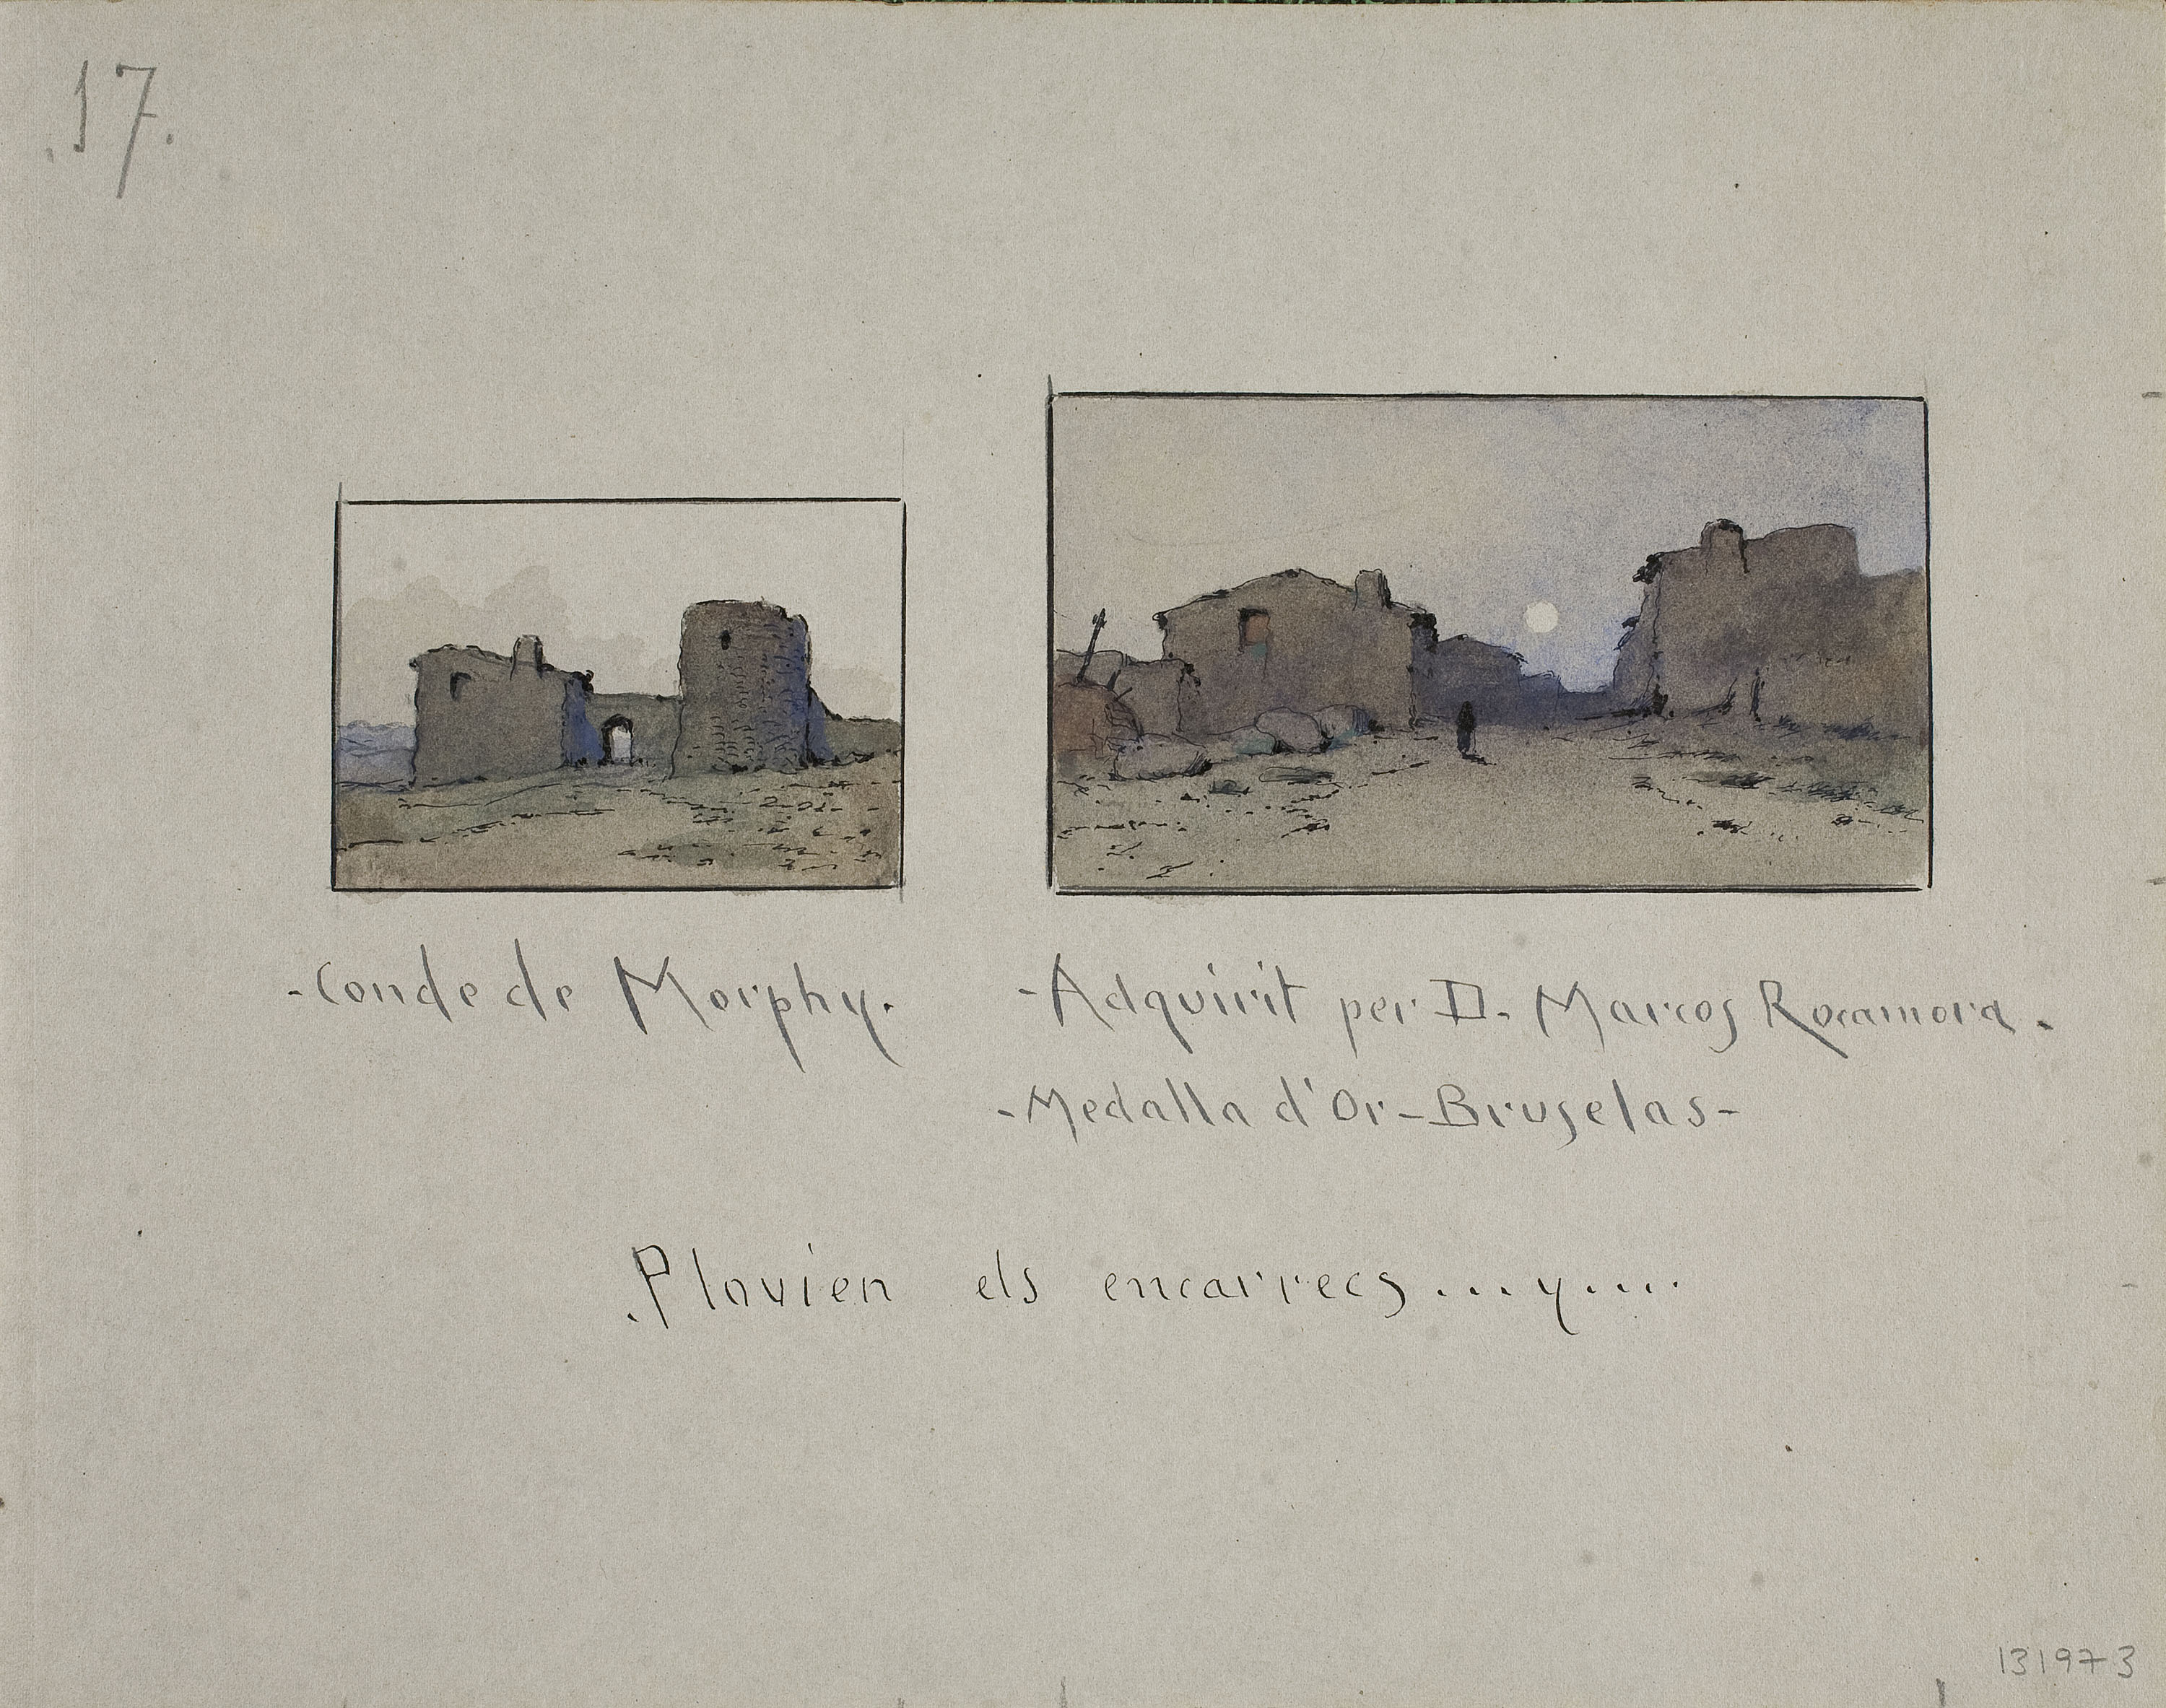 .17.
-Conde de Morphy.
-Adquirit per D. Marcos Rocamora.
-Medalla d'Or-Bruselas-
.Plovien els encarrecs....y....
131973